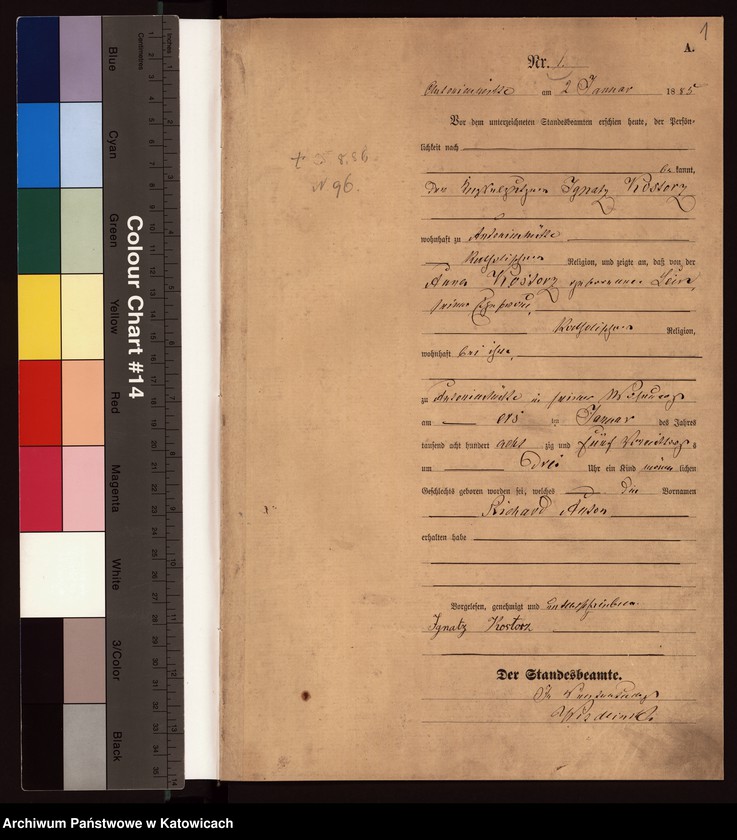 1
A.
Nr. 1.
Antonienhütte am 2 Januar 1885
Vor dem unterzeichneten Standesbeamten erschien heute, der Persön-
lichkeit nach
be kannt,
der Ignatz Kostorz
wohnhaft zu Antonienhütte
katholischer Religion, und zeigte an, daß von der
Anna Kostorz geborenen
seiner Ehefrau,
katholischer Religion,
wohnhaft bei ihm,
zu Antonienhütte in seiner Wohnung
am ersten Januar des Jahres
tausend acht hundert acht zig und fünf Vormittags
um Drei Uhr ein Kind männ lichen
Geschlechts geboren worden sei, welches die Vornamen
Richard Anton
erhalten habe
Vorgelesen, genehmigt und unterschrieben.
Ignatz Kostorz
Der Standesbeamte.
In Vertretung
† 5.8.86.
N 96.
Colour Chart #14
Blue
Cyan
Green
Yellow
Red
Magenta
White
3/Color
Black
Centimetres
Inches
Archiwum Państwowe w Katowicach